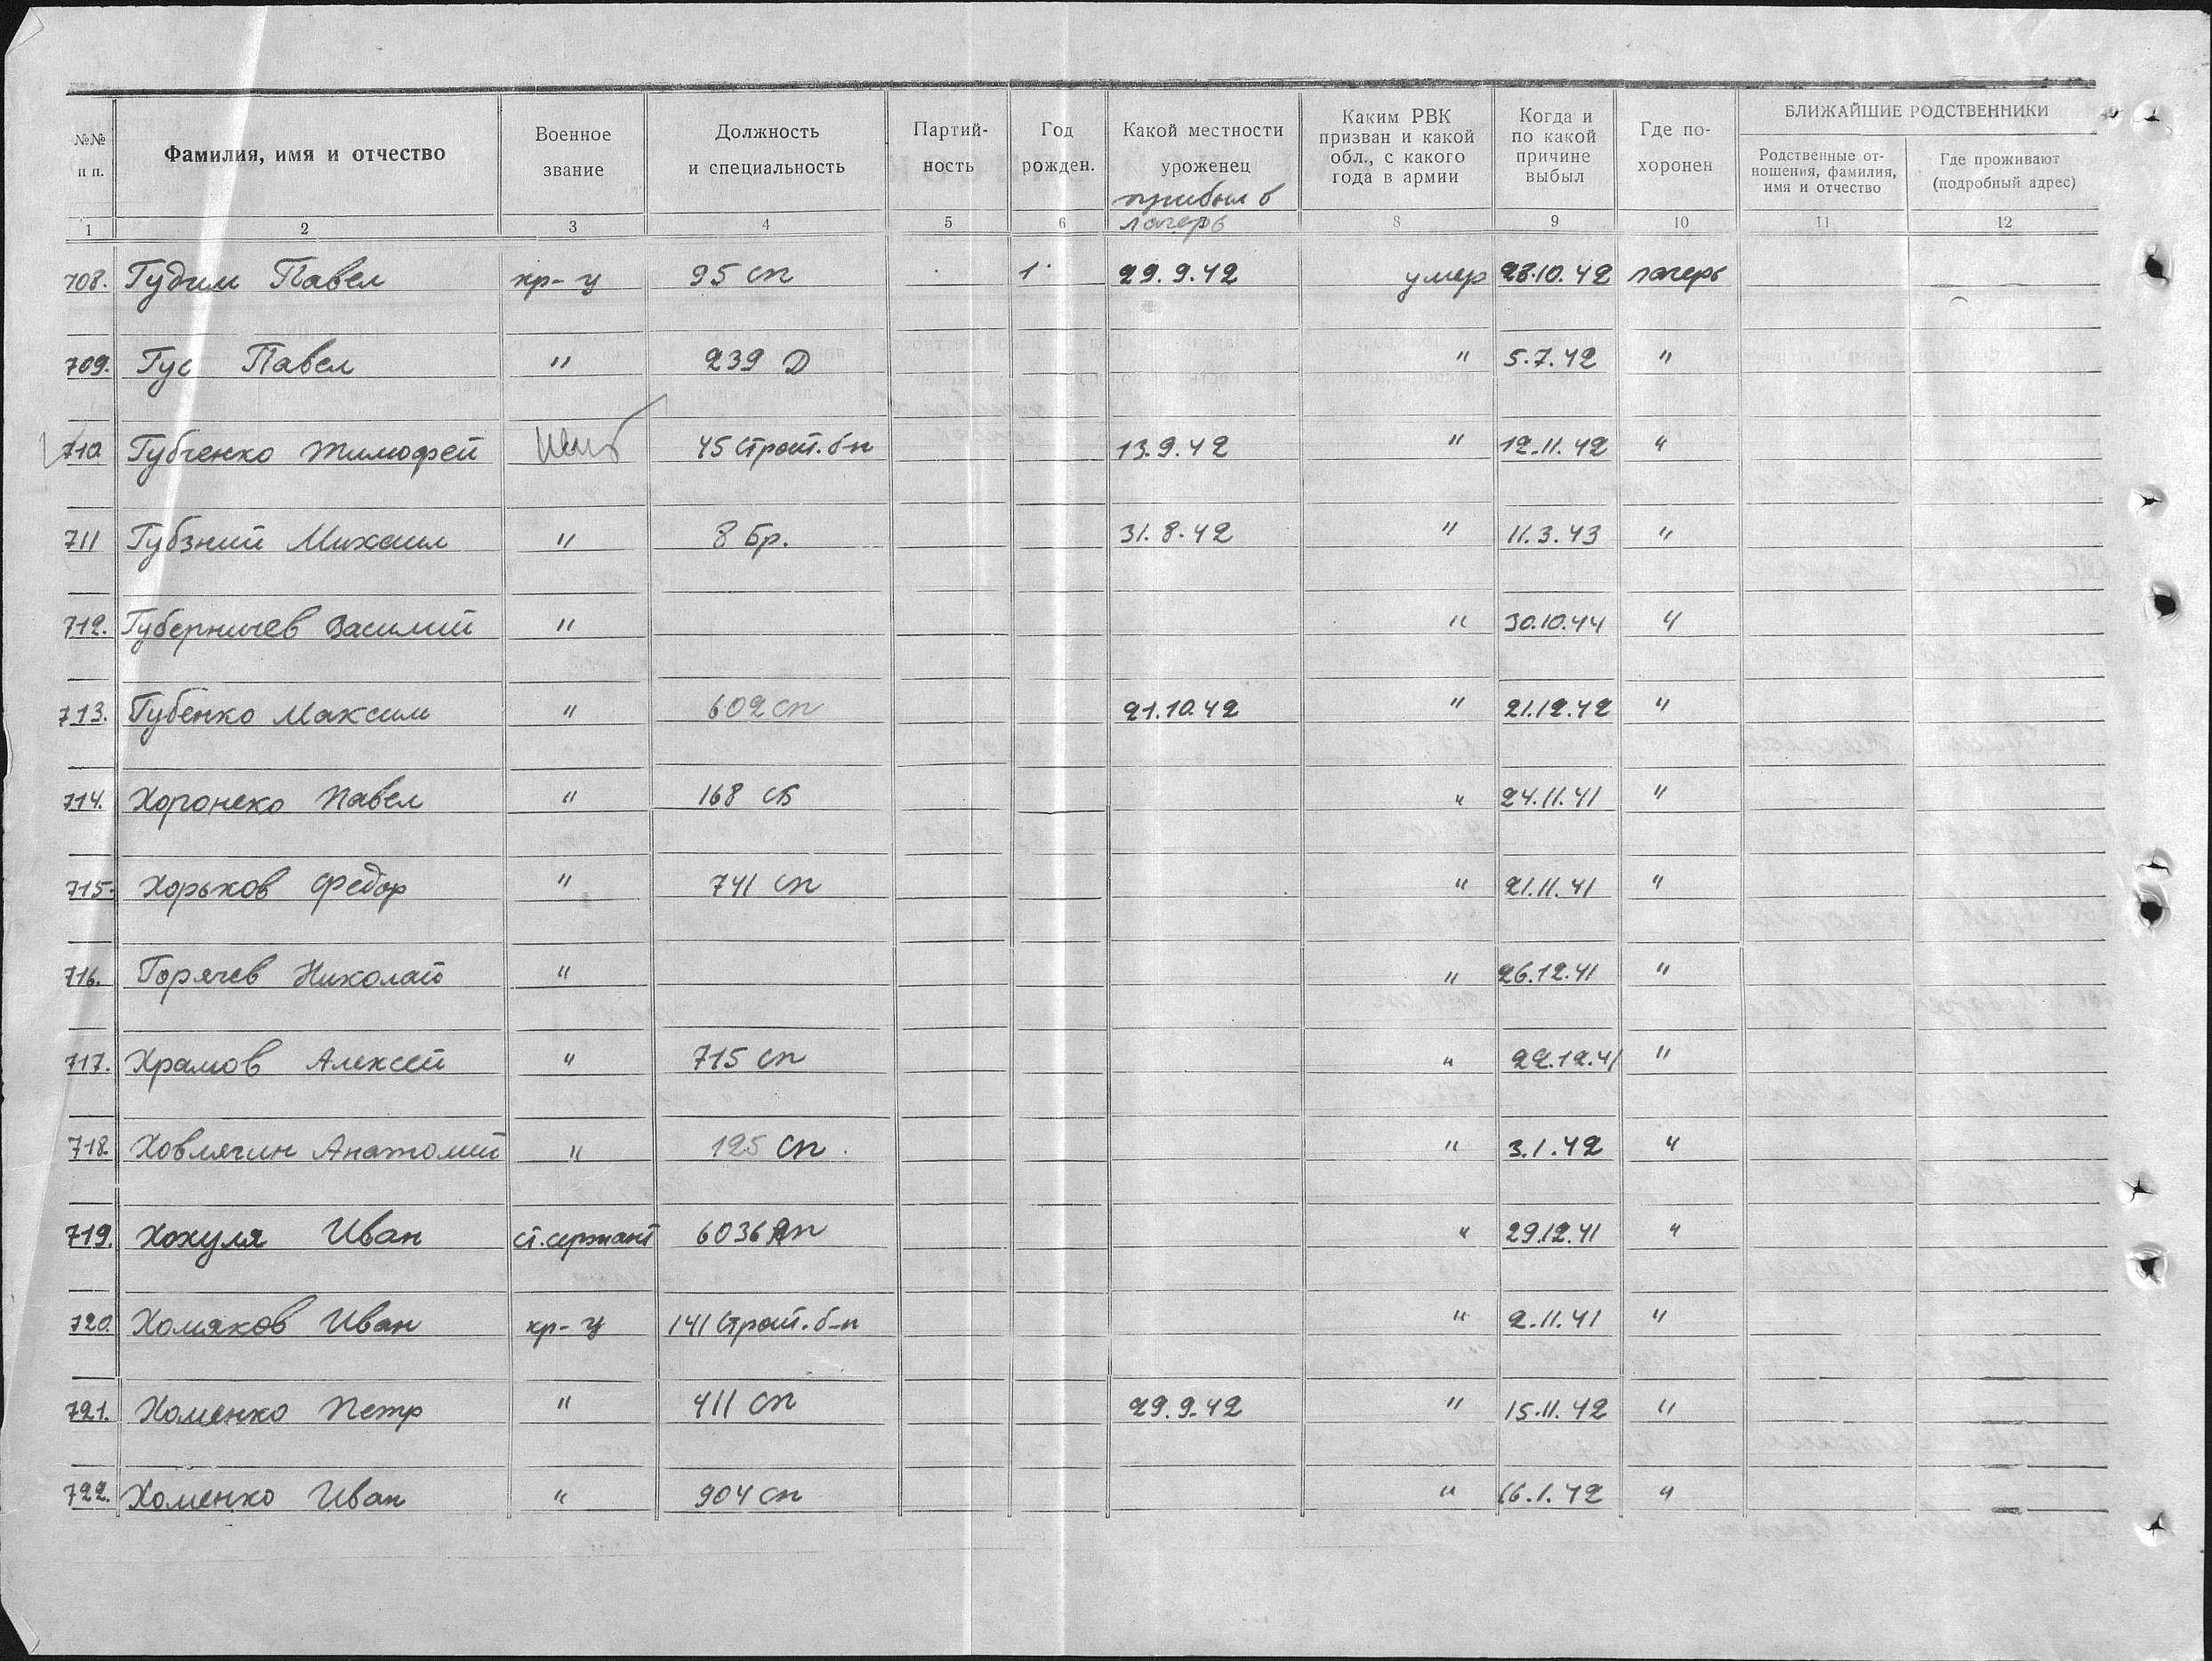 №№ п п.
Фамилия, имя и отчество
Военное звание
Должность и специальность
Партий-ность
Год рожден.
Какой местности уроженец
прибыл в лагерь
Каким РВК призван и какой обл., с какого года в армии
Когда и по какой причине выбыл
Где по-хоронен
БЛИЖАЙШИЕ РОДСТВЕННИКИ
Родственные от-ношения, фамилия, имя и отчество
Где проживают (подробный адрес)
1 2 3 4 5 6 8 9 10 11 12
708. Гудим Павел кр-ц 95 сп 1 29.9.42 умер 28.10.42 лагерь
709. Гус Павел " 239 Д " 5.7.42 "
710 Губченко Тимофей 45 Строит. б-н 13.9.42 " 12.11.42 "
711 Губзний Михаил " 8 Бр. 31.8.42 " 11.3.43 "
712. Губерничев Василий " " 30.10.44 "
713. Губенко Максим " 602 сп 21.10.42 " 21.12.42 "
714. Хоронеко Павел " 168 сб " 24.11.41 "
715. Хорьков Федор " 741 сп " 21.11.41 "
716. Горячев Николай " " 26.12.41 "
717. Храмов Алексей " 715 сп " 22.12.41 "
718. Ховлягин Анатолий " 125 сп " 3.1.42 "
719. Хохуля Иван ст. сержант 6036 " 29.12.41 "
720. Хомяков Иван кр-ц 141 Строит. б-н " 2.11.41 "
721. Хоменко Петр " 411 сп 29.9.42 " 15.11.42 "
722. Хоменко Иван " 904 сп " 16.1.42 "